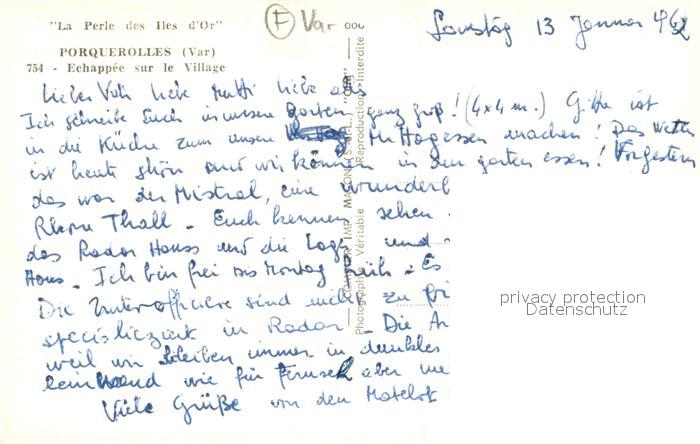 "La Perle des Iles d'Or"
F Var
PORQUEROLLES (Var)
754 - Echappée sur le Village
Samstag 13 Januar 1962
Lieber Vati liebe Mutti liebe
Ich schreibe Euch in unsere Garten ganz groß! (4x4 m.) Gitta ist
in die Küche zum unsen Mittagessen machen! Das Wetter
ist heute schön und wir können in den garten essen! Vorgestern
das war der Mistral, eine wunderb
Thall - Euch kennen sehen
das Radar Hauss und die und
Haus - Ich bin frei bis Montag früh - Es
Die Unterofficiere sind nich zu
specializiert in Radar - Die Ar
weil wir bleiben immer in dunkles
wie für Fernseh aber
Viele Grüße von den Matelot
Photographie Véritable - Reproduction Interdite
privacy protection
Datenschutz